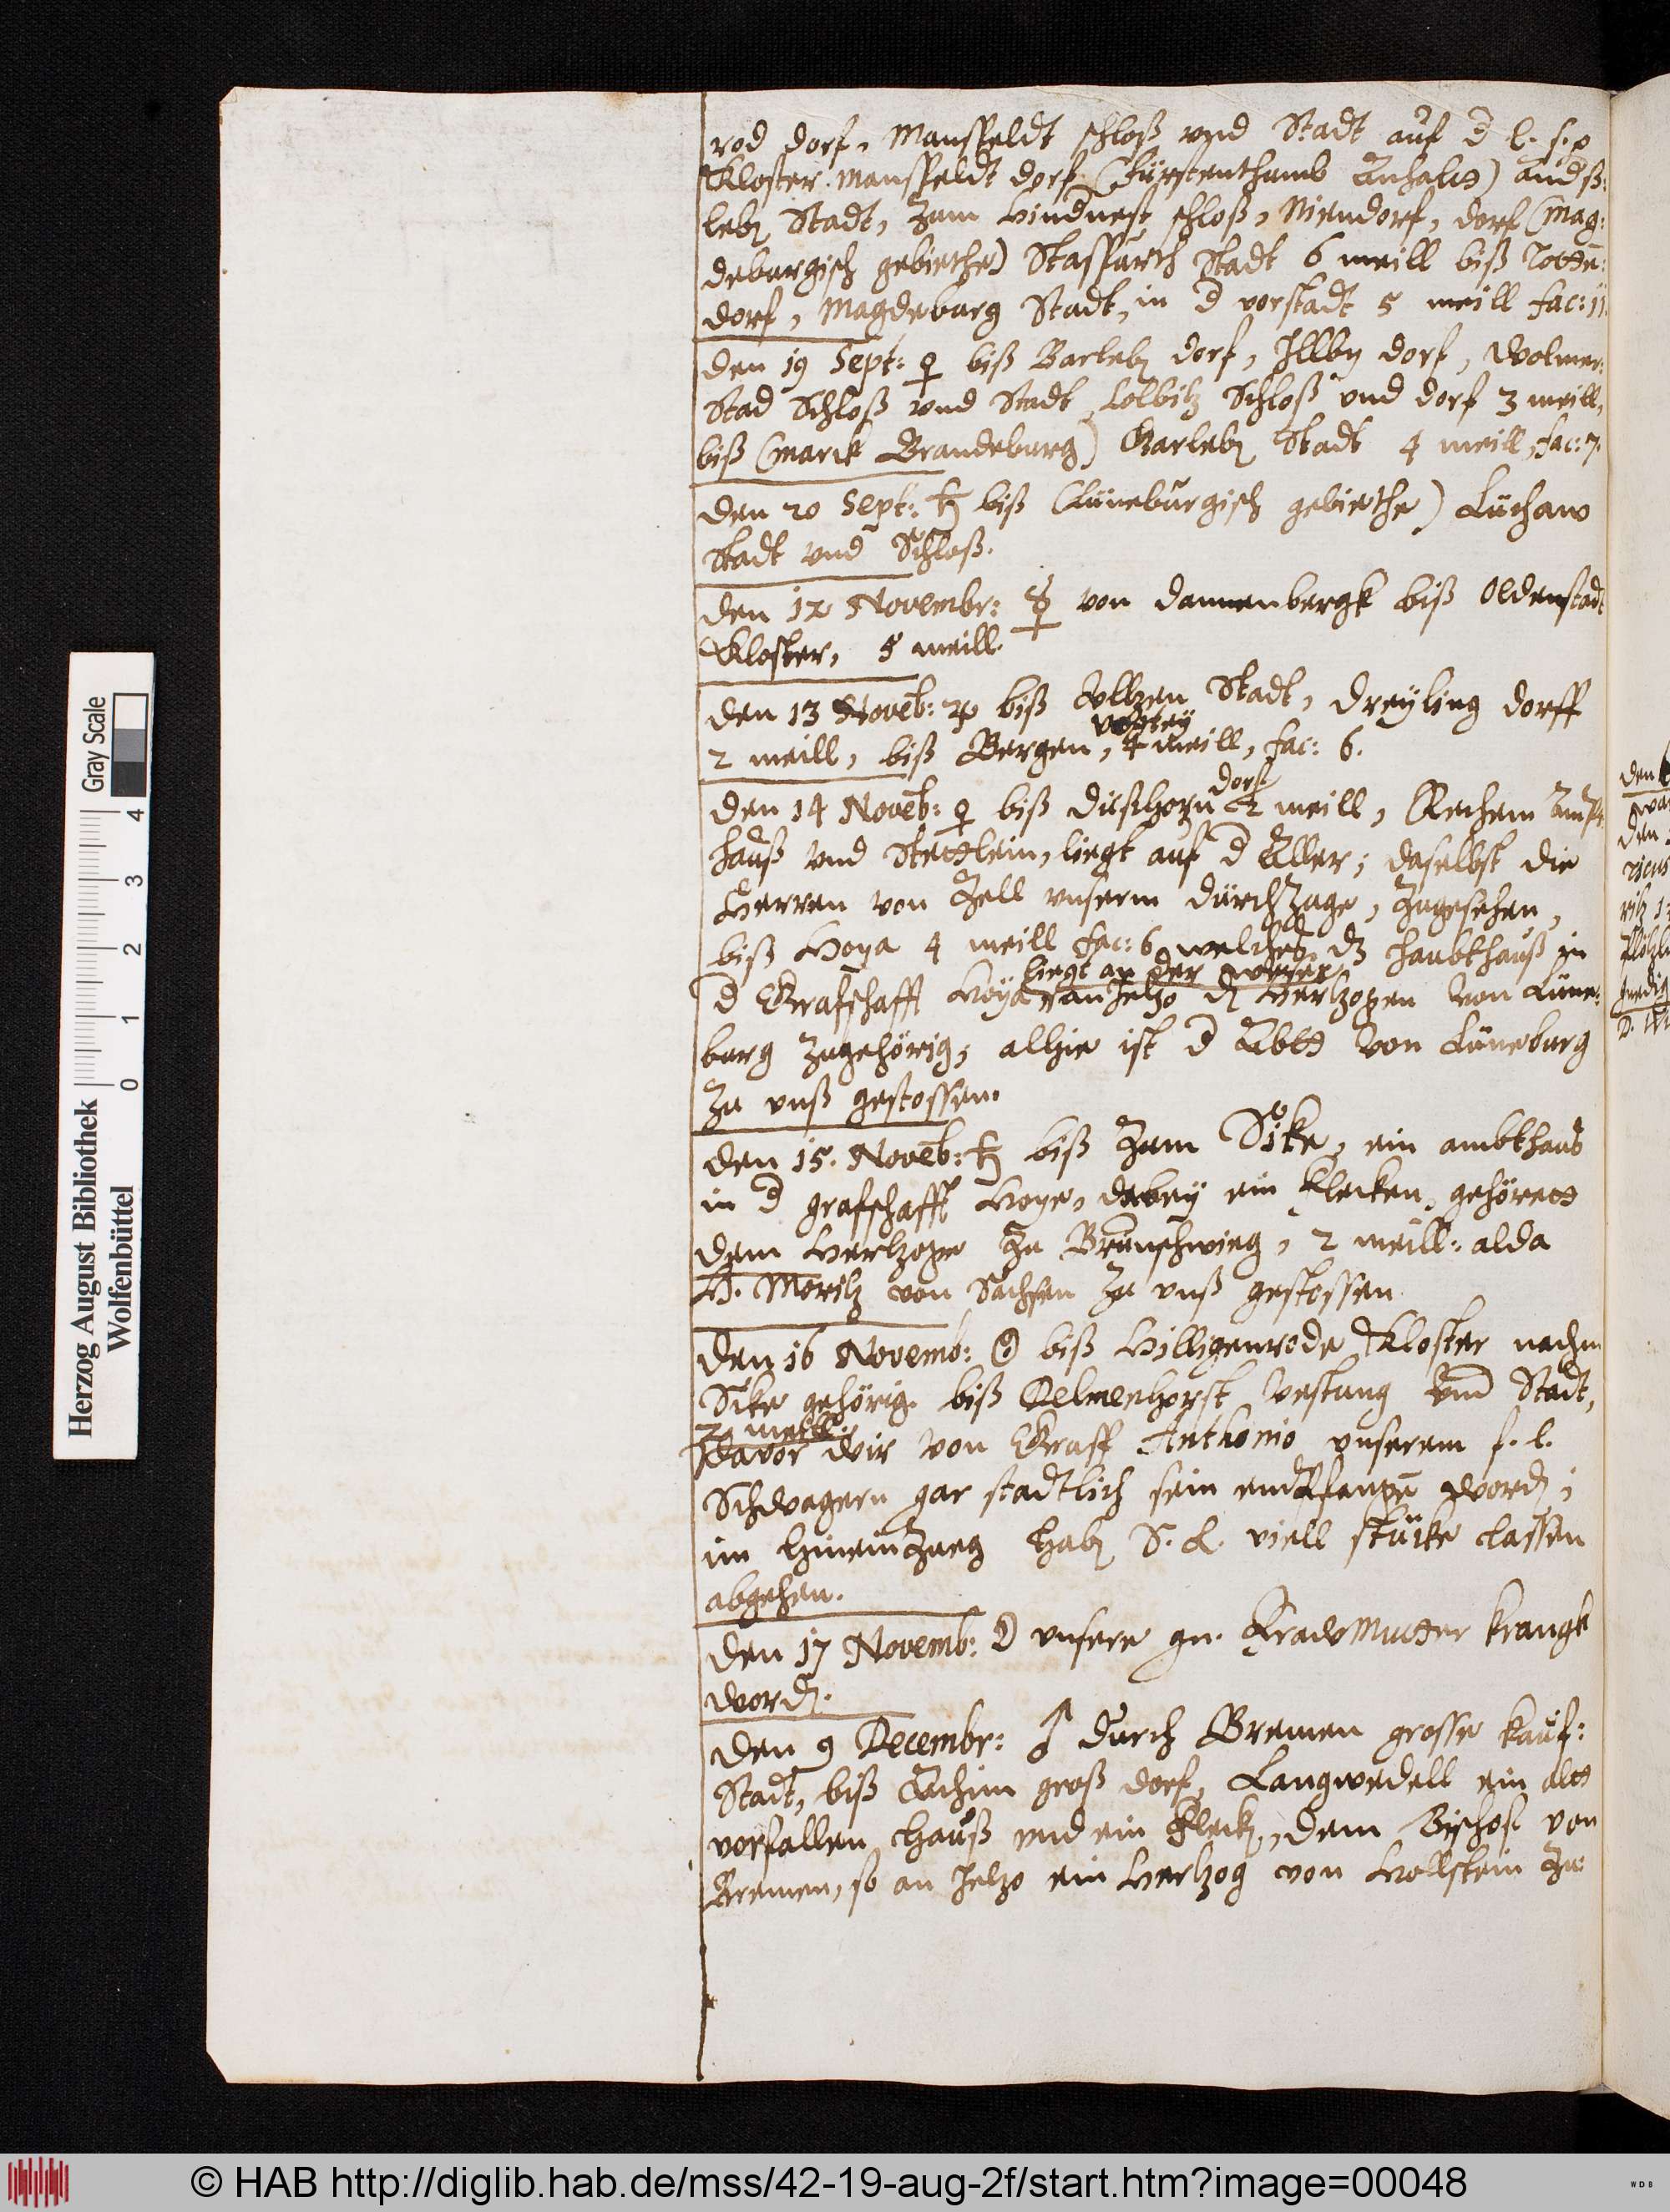 rod dorf, Mansfeldt schloß vnd Stadt auf d l. s. p
Kloster Mansfeldt dorf (Fürstenthumb Anhalt)
leb Stadt, Zum Lindnest schloß, Niendorf, dorf (Mag:
deburgisch gebiethe) Stasfurth Stadt 6 meill biß
dorf, Magdeburg Stadt, in d vorstadt 5 meill fac: 11
den 19 Sept: ♀ biß Barleb dorf, Illby dorf, Wolmer:
Stad Schloß vnd Stadt, Colbitz Schloß vnd dorf 3 meill,
biß (Marck Brandeburg) Garleb Stadt 4 meill, fac: 7.
den 20 Sept: ♄ biß (Lüneburgisch gebiethe) Lüchaw
Stadt vnd Schloß.
den 12 Novembr: ☿ von dannenbergk biß Oldenstadt
Kloster, 5 meill.
den 13 Noveb: ♃ biß Vllzen Stadt, Dreyling dorff
vogtey
2 meill, biß Bergen, 4 meill, fac: 6.
dorf
den 14 Noveb: ♀ biß düßhorn 2 meill, Rethem Ampt
hauß vnd Stettlein, liegt auf d Aller; daselbst die
Herren von Zell vnserm durchzuge, zugesehen,
biß Hoya 4 meill fac: 6 welches dz haubthauß in
liegt an der weser
d Graffschafft Hoya, an jetzo d Hertzogen von Lüne:
burg zugehörig; alhie ist d Abtt von Lüneburg
zu vnß gestossen.
den 15. Noveb: ♄ biß zum Sike, ein ambthaus
in d grafschafft Hoye, dabey ein flecken, gehörett
dem Hertzoge zu Brunschwieg, 2 meill: alda
H. Moritz von Sachsen zu vnß gestossen
den 16 Novemb: ☉ biß Hilligenrode Kloster nachm
Sike gehörig. biß Delmenhorst Vestung vnd Stadt,
2 meill.
davor wir von Graff Anthonio vnserem f. l.
Schwagern gar stadtlich sein endtfange word;
im hineinzueg hab S. L. viell stücke lassen
abgehen.
den 17 Novemb: ☽ vnsere gn. Fraw Mutter krangk
word.
den 9 Decembr: ♂ durch Bremen grosse kauf:
Stadt, biß Achim groß dorf, Langwedell ein altt
vorfallen hauß vnd ein Fleck, dem Bischof von
Bremen, so an jetzo ein Hertzog von Hollstein zu
den
Herzog August Bibliothek
Wolfenbüttel
Gray Scale
0 1 2 3 4
© HAB http://diglib.hab.de/mss/42-19-aug-2f/start.htm?image=00048
WDB